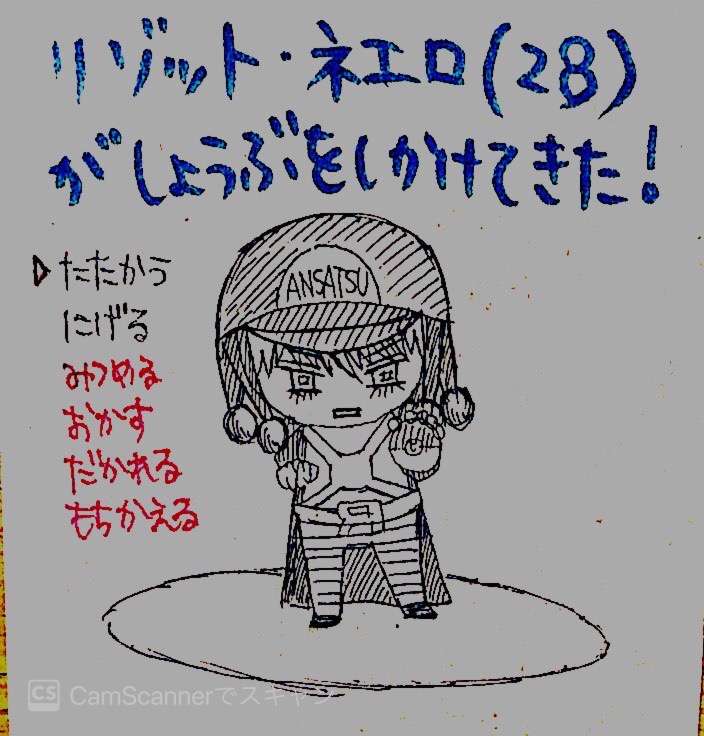 リゾット・ネエロ(28)
がしょうぶをしかけてきた!
▷たたかう
にげる
みつめる
おかす
だかれる
もちかえる
ANSATSU
CS CamScannerでスキャン